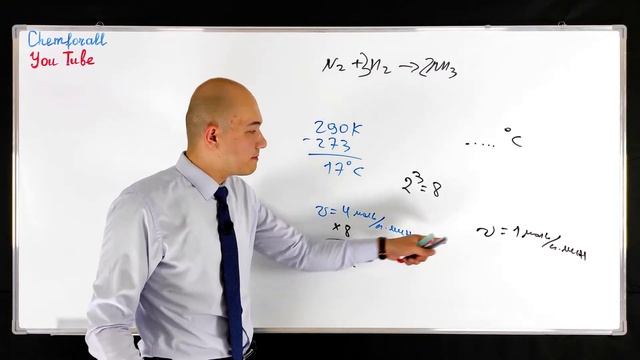 Chemforall
You Tube
N₂ + 3H₂ → 2NH₃
290K
- 273
17°C
..... °C
2³ = 8
v = 4 моль/л.мин
× 8
v = 1 моль/л.мин